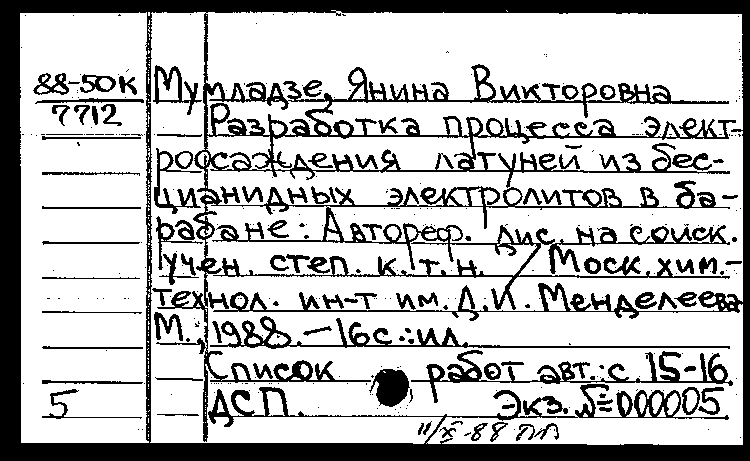 88-50К Мумладзе, Янина Викторовна
7712 Разработка процесса элект-
роосаждения латуней из бес-
цианидных электролитов в ба-
рабане: Автореф. дис. на соиск.
учен. степ. к. т. н. / Моск. хим.-
технол. ин-т им. Д. И. Менделеева
М., 1988. – 16 с.: ил.
Список работ авт.: с. 15-16.
5 ДСП. Экз. № 000005
11/X-88